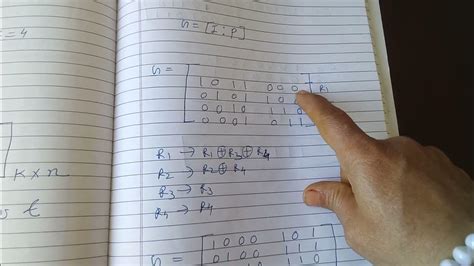 = 4
G = [I : P]
G =
1 0 1 1 0 0 0 R1
0 1 0 1 1 0
0 0 1 0 1 1 0
0 0 0 1 0 1 1
R1 → R1 ⊕ R3 ⊕ R4
R2 → R2 ⊕ R4
R3 → R3
R4 → R4
K × n
G =
1 0 0 0 1 0 1
0 1 0 0 1 1 1